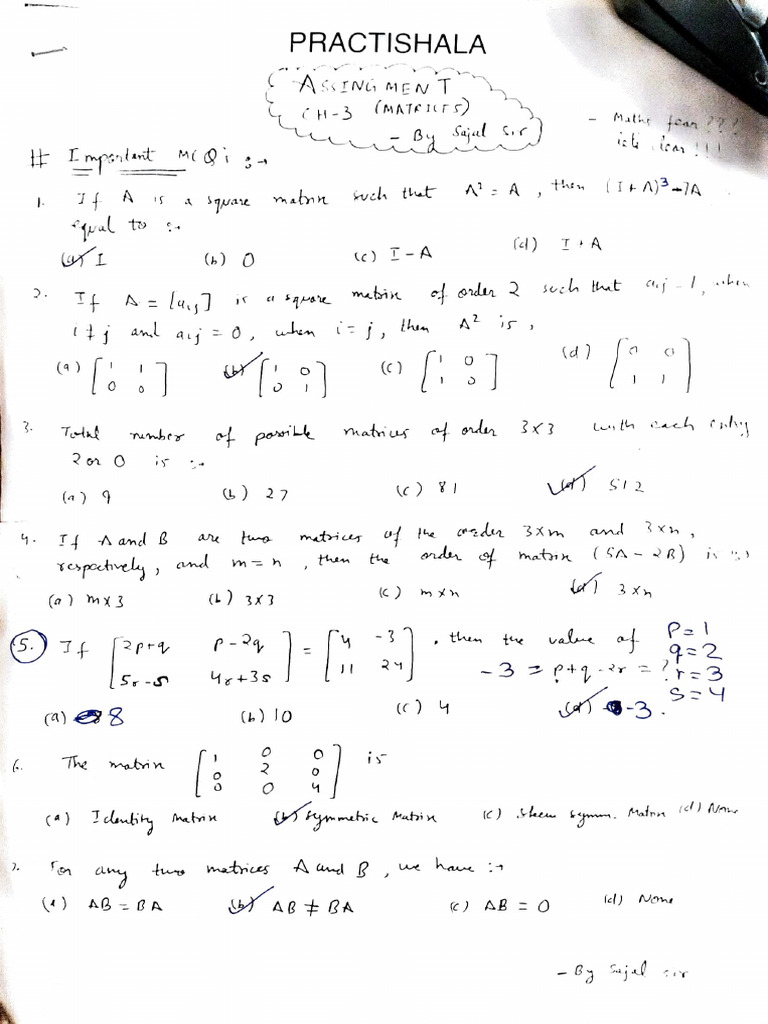 PRACTISHALA
ASSINGMENT
CH-3 (MATRICES)
- By Sajal Sir
- Maths fear???
# Important MCQs :→
1. If A is a square matrix such that A² = A, then (I + A)³ - 7A
equal to :→
(a) I (b) 0 (c) I - A (d) I + A
2. If A = [aij] is a square matrix of order 2 such that aij - 1, when
i ≠ j and aij = 0, when i = j, then A² is,
(a) [1 1; 0 0] (b) [1 0; 0 1] (c) [1 0; 1 0] (d) [0 0; 1 1]
3. Total number of possible matrices of order 3x3 with each entry
2 or 0 is :→
(a) 9 (b) 27 (c) 81 (d) 512
4. If A and B are two matrices of the order 3xm and 3xn,
respectively, and m = n, then the order of matrix (5A - 2B) is :→
(a) m x 3 (b) 3 x 3 (c) m x n (d) 3 x n
5. If [2p+q p-2q; 5r-s 4r+3s] = [4 -3; 11 24], then the value of
p=1
q=2
r=3
s=4
-3 = p+q-2r = ?
(a) 8 (b) 10 (c) 4 (d) -3.
6. The matrix [1 0 0; 0 2 0; 0 0 4] is
(a) Identity Matrix (b) Symmetric Matrix (c) skew symm. Matrix (d) None
7. For any two matrices A and B, we have :→
(a) AB = BA (b) AB ≠ BA (c) AB = 0 (d) None
- By Sajal sir